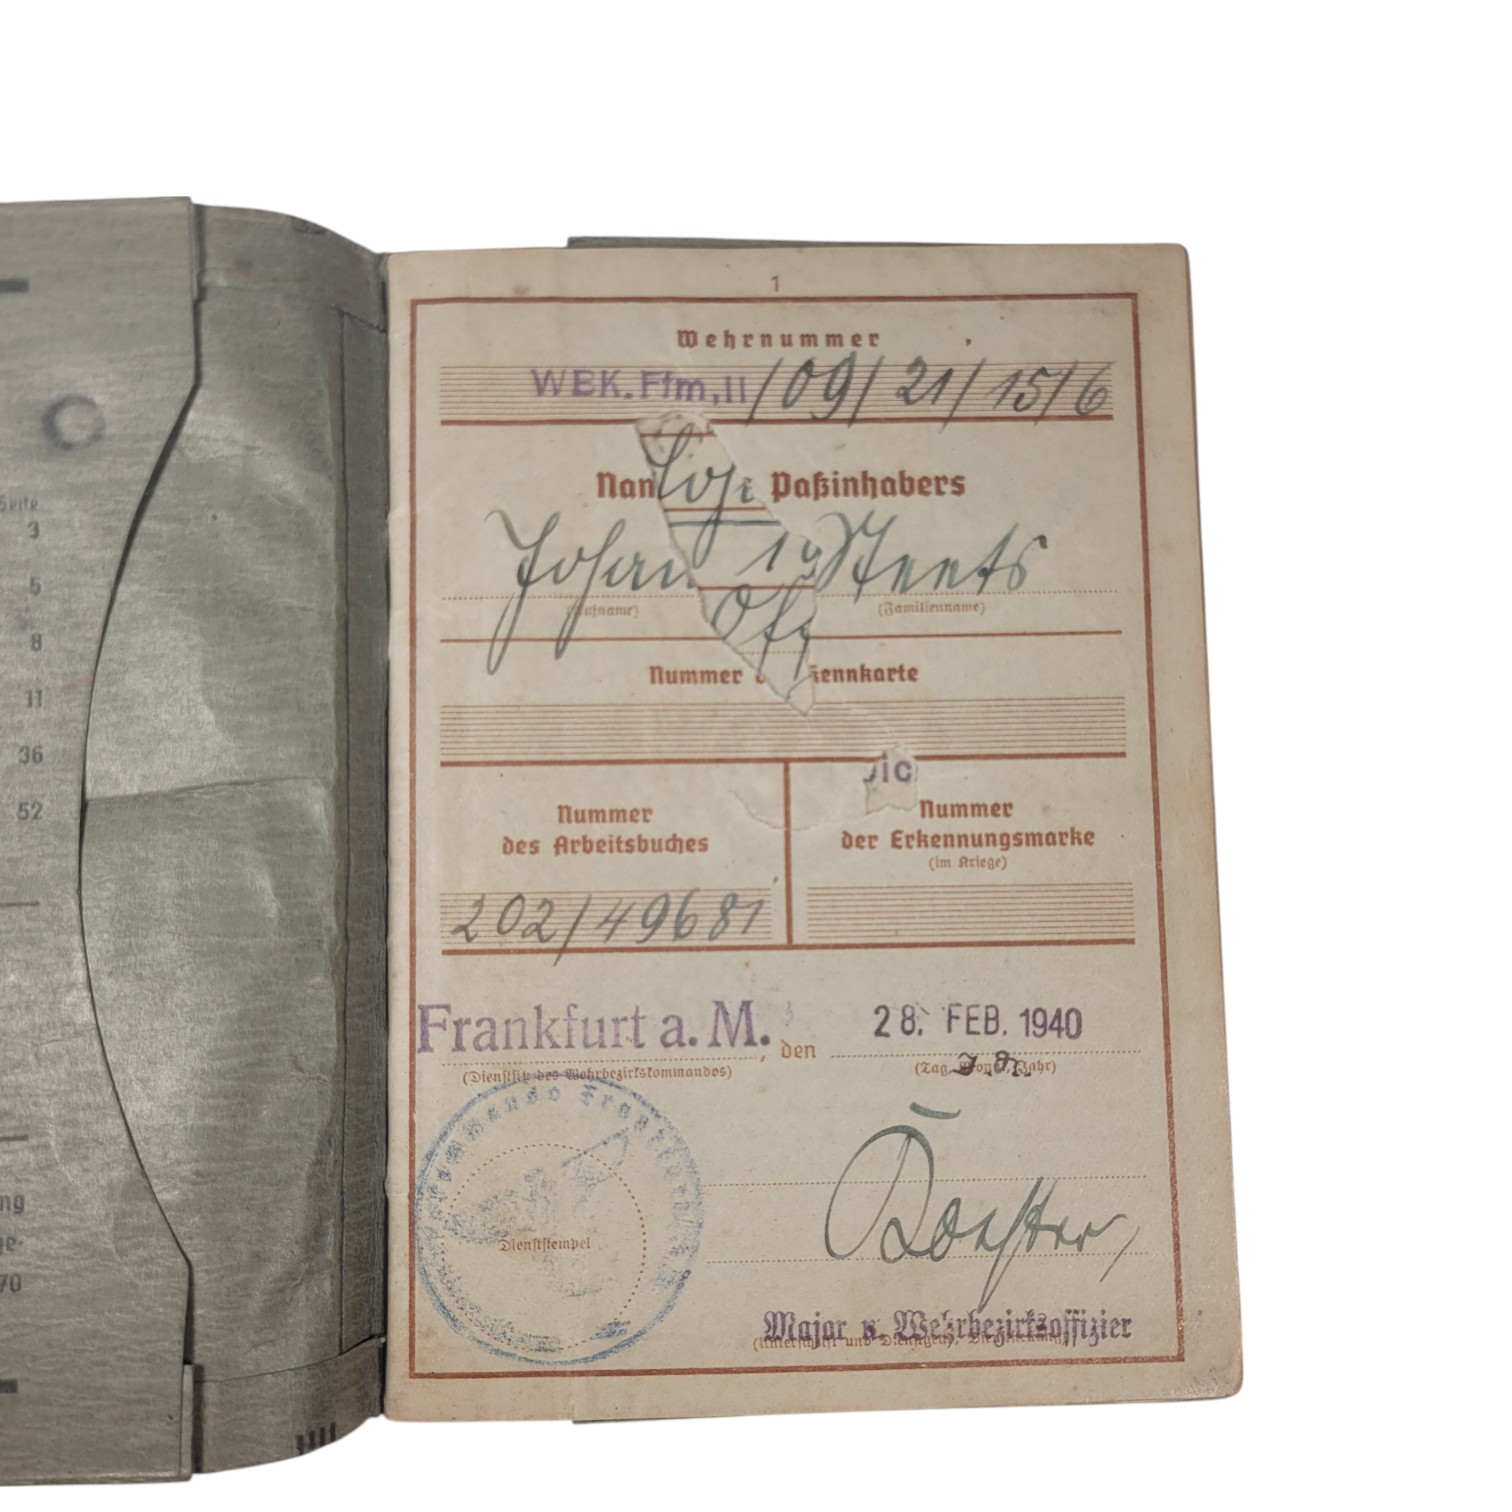 Seite
3
5
8
11
36
52
ng
ge-
70
1
Wehrnummer
WBK. Ffm, II /09/ 21/ 15/6
Nam Paßinhabers
Johan Steets
(Rufname) (Familienname)
Nummer d kennkarte
Nummer des Arbeitsbuches
202/49681
Nummer der Erkennungsmarke
(im Kriege)
Frankfurt a. M. , den 28. FEB. 1940
(Dienstsitz des Wehrbezirkskommandos) (Tag, Monat, Jahr)
Dienststempel
Major u. Wehrbezirksoffizier